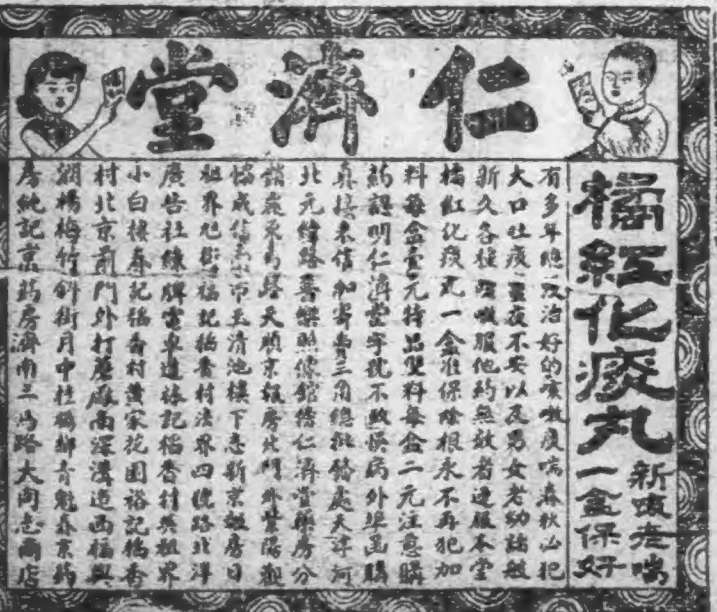 仁濟堂
橘紅化痰丸
新咳老喘
一盒保好
有多年總沒治好的咳嗽痰喘春秋必犯
大口吐痰晝夜不安以及男女老幼諸般
新久各種咳嗽服他藥無效者速服本堂
橘紅化痰丸一盒准保除根永不再犯加
料每盒壹元特品雙料每盒二元注意購
藥認明仁濟堂字號不致悞病外埠函購
真接來信加寄費三角總批發處天津河
北元緯路 樂照像館傍仁濟堂藥房分
銷處東馬路天順京報房北門外紫陽觀
協成信 南市玉清池樓下志新京報房日
租界旭街福記稻香村法界四號路北洋
廣告社綠牌電車道林記稻香村英租界
小白樓春記稻香村黃家花園裕記稻香
村北京前門外打磨廠南深溝道西福興
潤楊梅竹斜街月中桂 鄉青魁春京藥
房純記京藥房濟南二馬路大同志商店